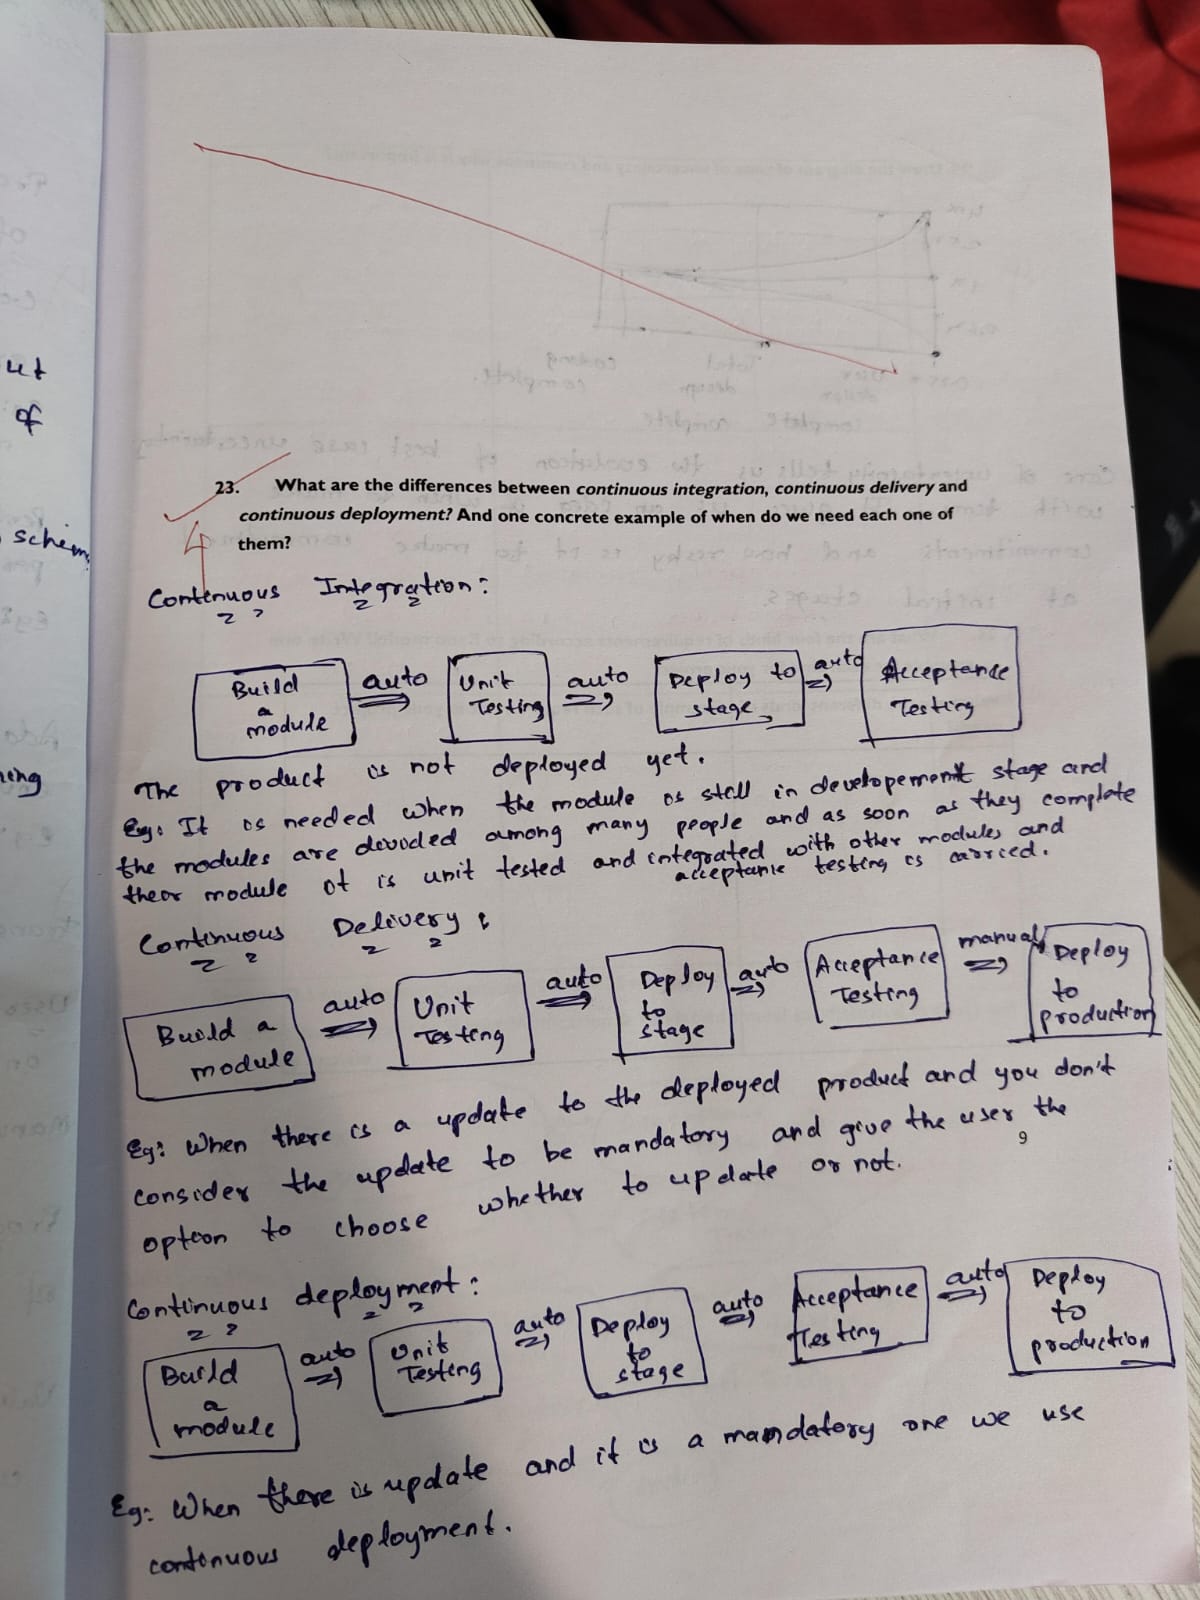 ut
of
schem
ning
23. What are the differences between continuous integration, continuous delivery and
continuous deployment? And one concrete example of when do we need each one of
them?
4
Continuous Integration:
Build a module auto Unit Testing auto Deploy to stage auto Acceptance Testing
The product is not deployed yet.
Eg: It is needed when the module is still in developement stage and
the modules are divided among many people and as soon as they complete
their module it is unit tested and integrated with other modules and
acceptance testing is carried.
Continuous Delivery:
Build a module auto Unit Testing auto Deploy to stage auto Acceptance Testing manual Deploy to production
Eg: When there is a update to the deployed product and you don't
consider the update to be mandatory and give the user the
option to choose whether to update or not.
9
Continuous deployment:
Build a module auto Unit Testing auto Deploy to stage auto Acceptance Testing auto Deploy to production
Eg: When there is update and it is a mandatory one we use
continuous deployment.